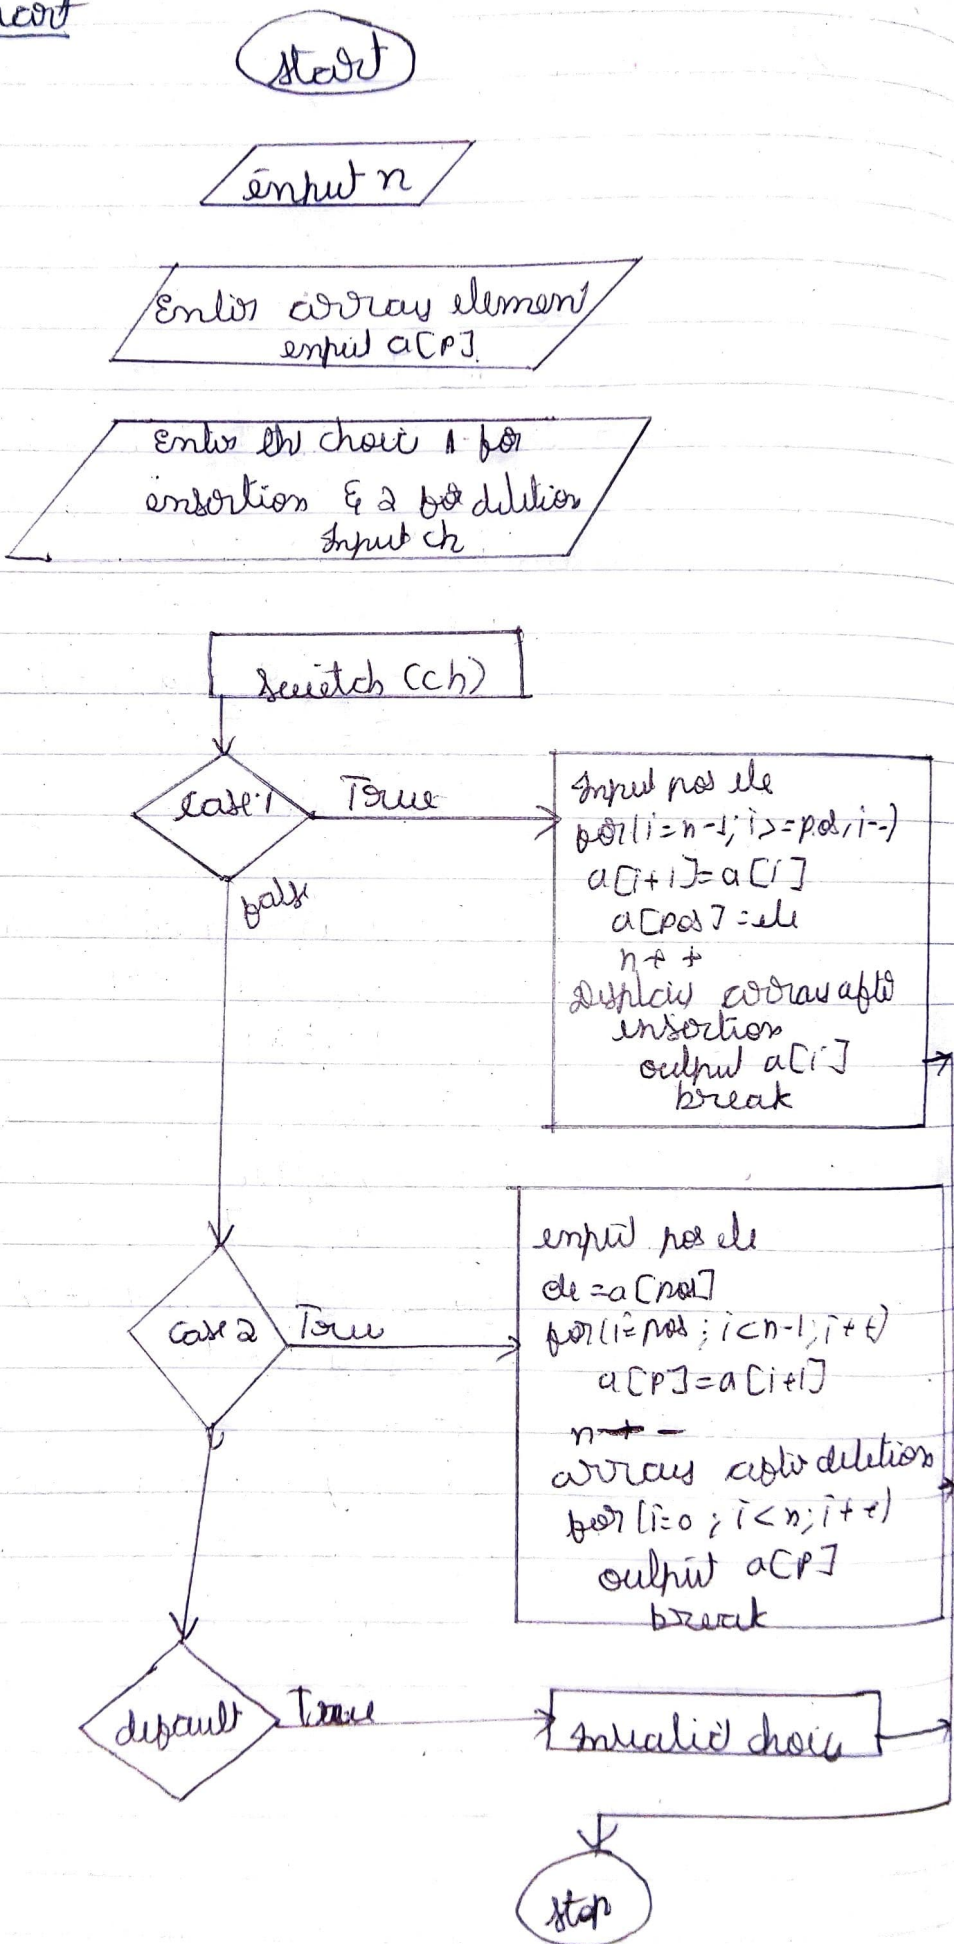 Start
input n
Enter array element
input a[i]
Enter the choice 1 for
insertion & 2 for deletion
Input ch
Switch (ch)
case 1
True
Input pos ele
for(i=n-1; i>=pos, i--)
a[i+1]=a[i]
a[pos]=ele
n++
Display array after
insertion
output a[i]
break
false
input pos ele
ele=a[pos]
for(i=pos; i<n-1; i++)
a[i]=a[i+1]
case 2
True
n--
array after deletion
for(i=0; i<n; i++)
output a[i]
break
default
True
Invalid choice
stop